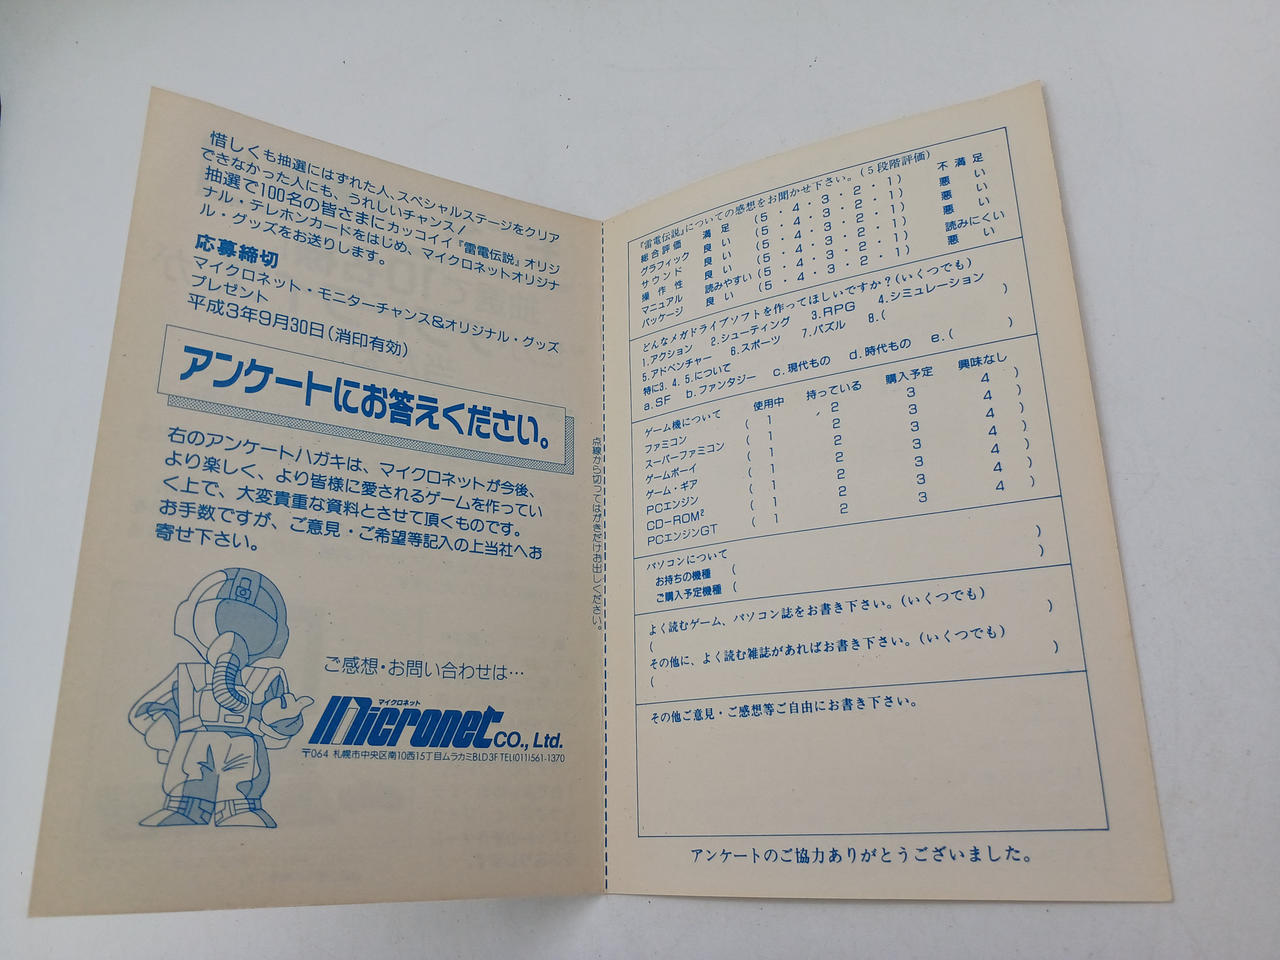 惜しくも抽選にはずれた人、スペシャルステージをクリア
できなかった人にも、うれしいチャンス!
抽選で100名の皆さまにカッコイイ『雷電伝説』オリジ
ナル・テレホンカードをはじめ、マイクロネットオリジナ
ル・グッズをお送りします。
応募締切
マイクロネット・モニターチャンス&オリジナル・グッズ
プレゼント
平成3年9月30日(消印有効)
アンケートにお答えください。
右のアンケートハガキは、マイクロネットが今後、
より楽しく、より皆様に愛されるゲームを作ってい
く上で、大変貴重な資料とさせて頂くものです。
お手数ですが、ご意見・ご希望等記入の上当社へお
寄せ下さい。
ご感想・お問い合わせは…
マイクロネット
Micronet CO., Ltd.
〒064 札幌市中央区南10西15丁目ムラカミBLD3F TEL(011)561-1370
点線から切ってはがきだけお出しください。
『雷電伝説』についての感想をお聞かせ下さい。(5段階評価)
総合評価 満足 (5・4・3・2・1) 不満足
グラフィック 良い (5・4・3・2・1) 悪い
サウンド 良い (5・4・3・2・1) 悪い
操作性 良い (5・4・3・2・1) 悪い
マニュアル 読みやすい (5・4・3・2・1) 読みにくい
パッケージ 良い (5・4・3・2・1) 悪い
どんなメガドライブソフトを作ってほしいですか?(いくつでも)
1.アクション 2.シューティング 3.RPG 4.シミュレーション
5.アドベンチャー 6.スポーツ 7.パズル 8.( )
特に3.4.5.について
a.SF b.ファンタジー c.現代もの d.時代もの e.( )
ゲーム機について 使用中 持っている 購入予定 興味なし
ファミコン ( 1 2 3 4 )
スーパーファミコン ( 1 2 3 4 )
ゲームボーイ ( 1 2 3 4 )
ゲーム・ギア ( 1 2 3 4 )
PCエンジン ( 1 2 3 4 )
CD-ROM² ( 1 2 3 4 )
PCエンジンGT ( 1 2 3 4 )
パソコンについて
お持ちの機種 ( )
ご購入予定機種 ( )
よく読むゲーム、パソコン誌をお書き下さい。(いくつでも)
( )
その他に、よく読む雑誌があればお書き下さい。(いくつでも)
( )
その他ご意見・ご感想等ご自由にお書き下さい。
アンケートのご協力ありがとうございました。